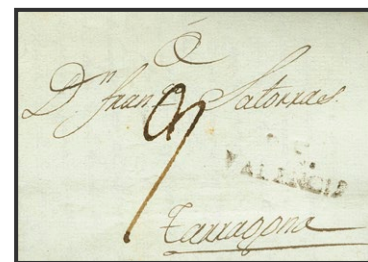 Dn Franco Satorras
VALENCIA
Tarragona